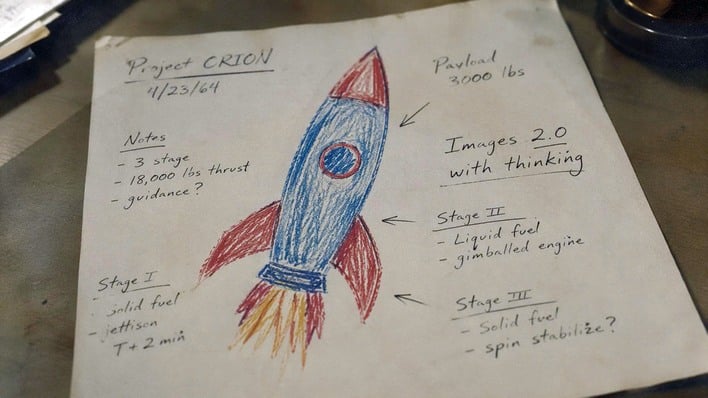 Project CRION
4/23/64
Payload
3000 lbs
Notes
- 3 stage
- 18,000 lbs thrust
- guidance?
Images 2.0
with thinking
Stage II
- Liquid fuel
- gimballed engine
Stage I
- Solid fuel
- jettison
T+2 min
Stage III
- Solid fuel
- spin stabilize?